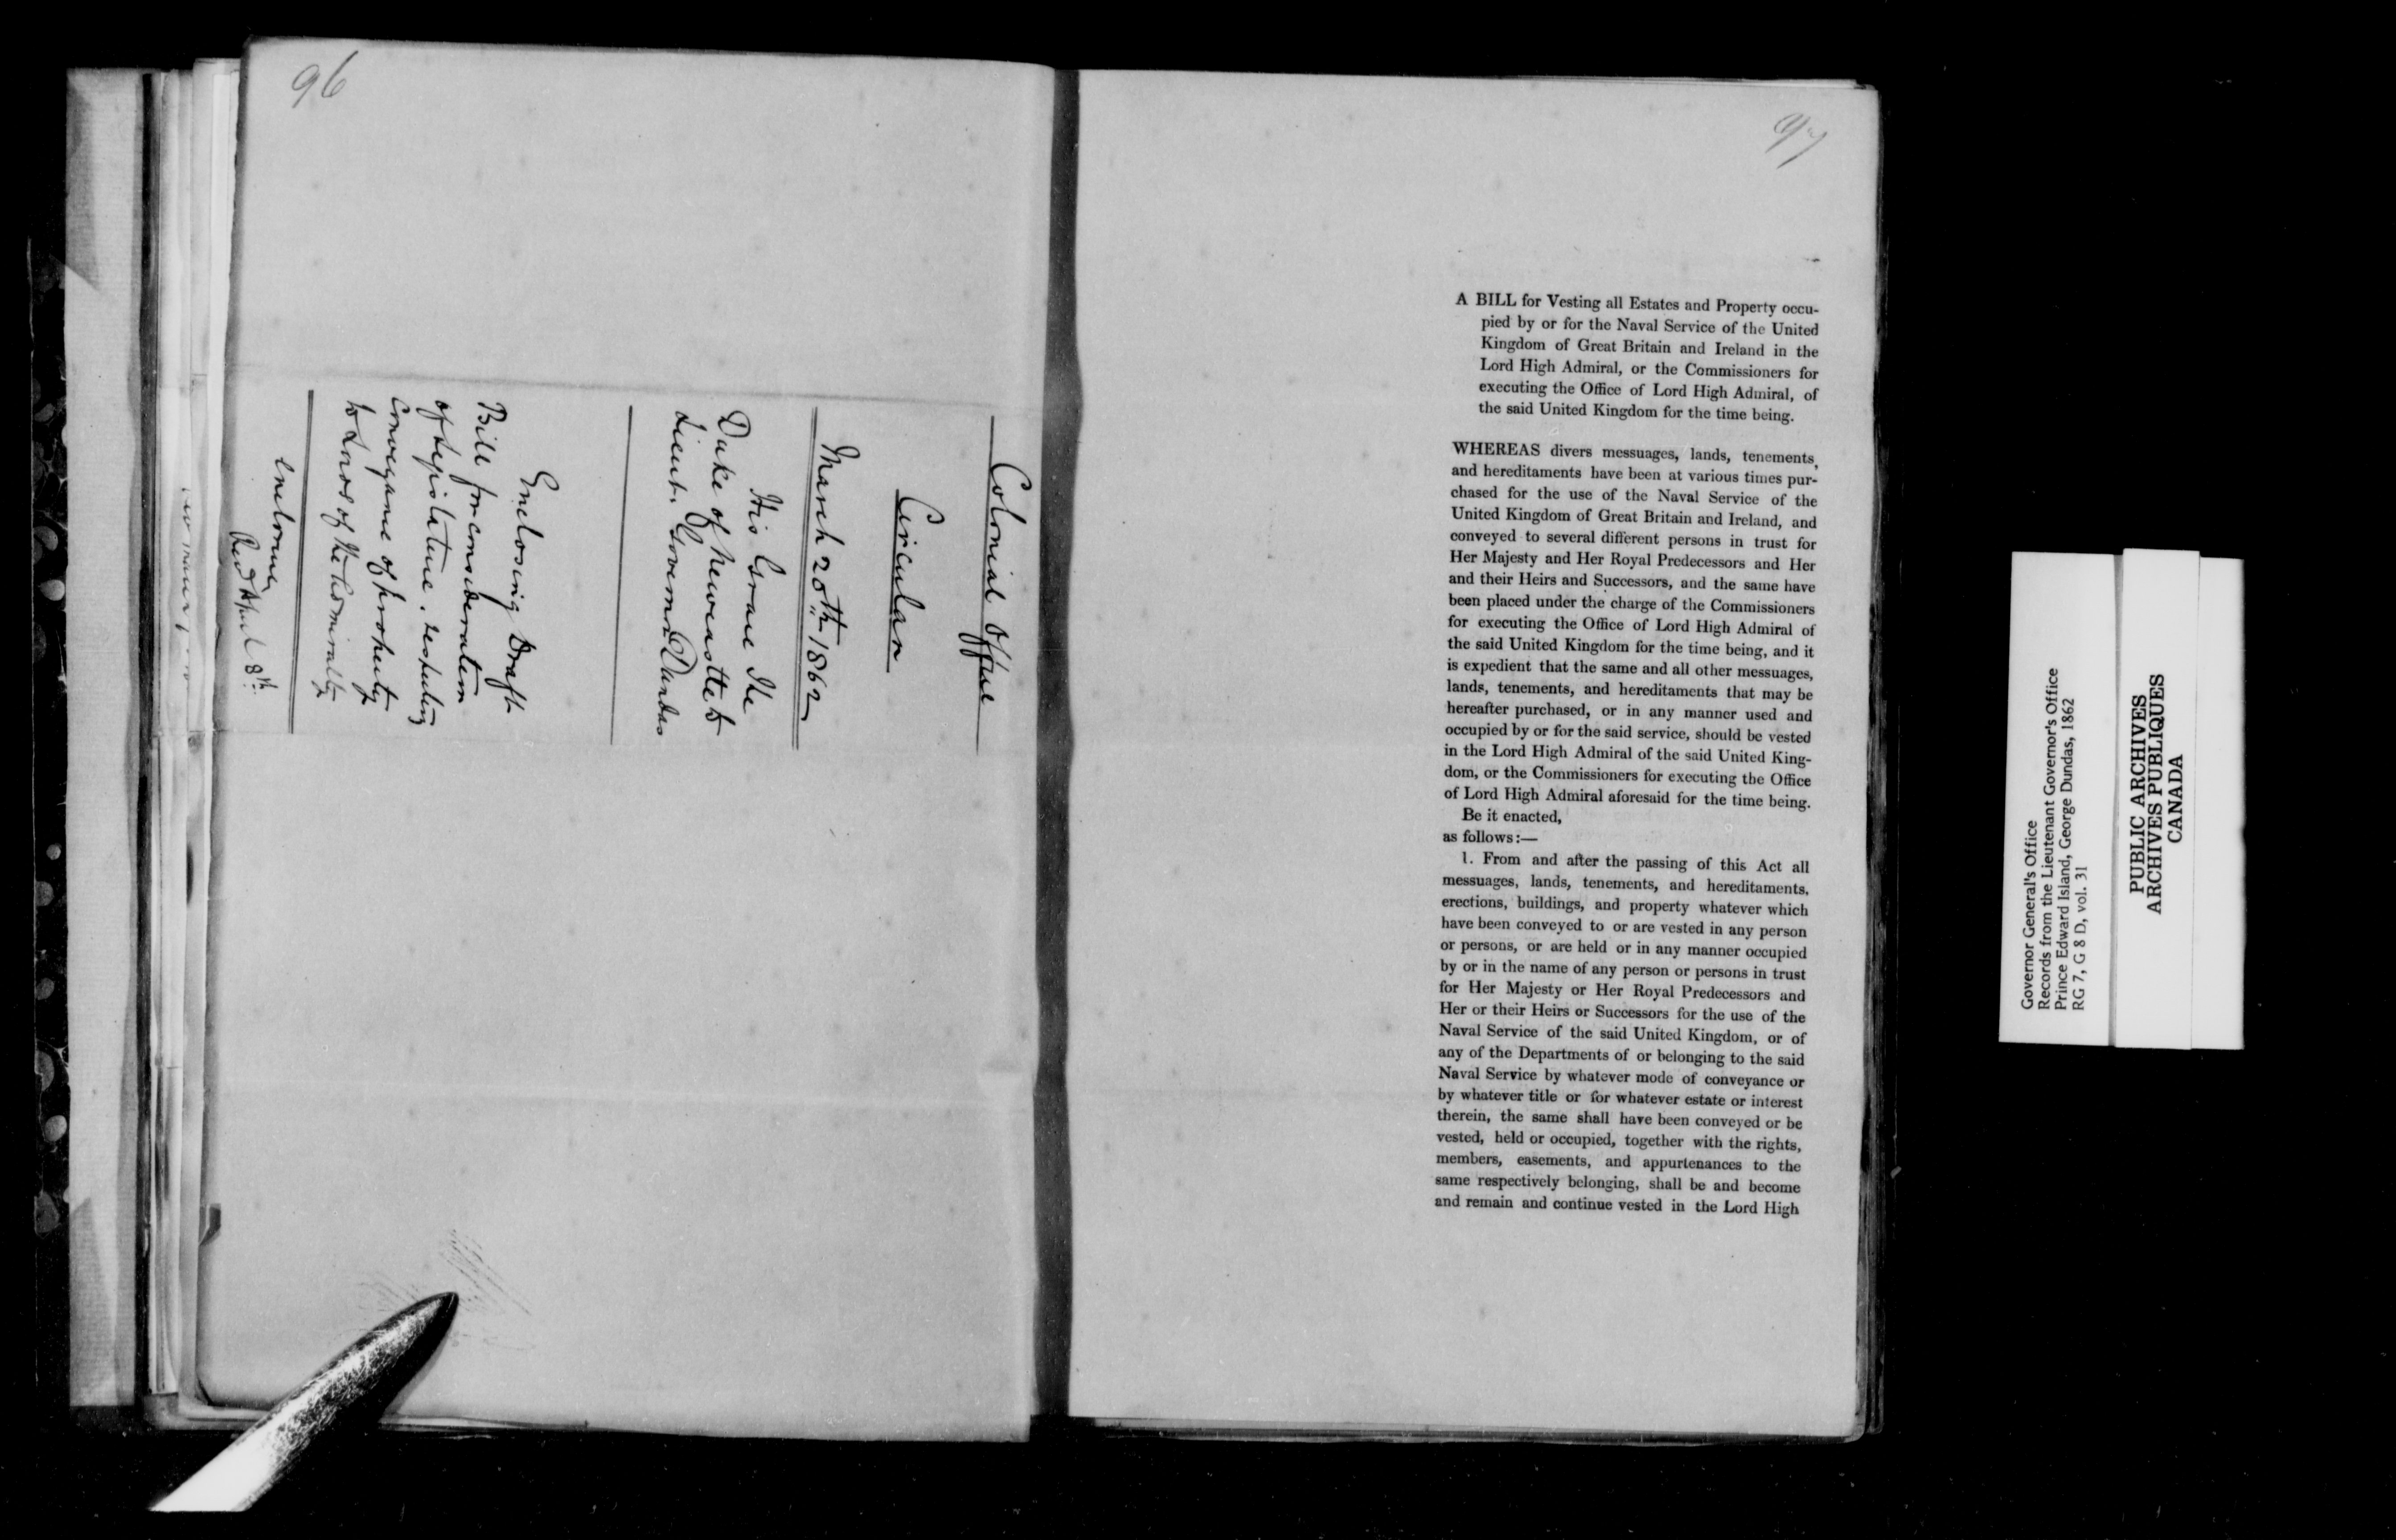 96
Colonial Office
Circular
March 20th 1862
His Grace the
Duke of Newcastle to
Lieut. Governor Dundas
Enclosing Draft
Bill for consideration
of Legislature, respecting
conveyance of property
to Lords of the Admiralty
Enclosure
Recd April 8th
97
A BILL for Vesting all Estates and Property occu-
pied by or for the Naval Service of the United
Kingdom of Great Britain and Ireland in the
Lord High Admiral, or the Commissioners for
executing the Office of Lord High Admiral, of
the said United Kingdom for the time being.
WHEREAS divers messuages, lands, tenements,
and hereditaments have been at various times pur-
chased for the use of the Naval Service of the
United Kingdom of Great Britain and Ireland, and
conveyed to several different persons in trust for
Her Majesty and Her Royal Predecessors and Her
and their Heirs and Successors, and the same have
been placed under the charge of the Commissioners
for executing the Office of Lord High Admiral of
the said United Kingdom for the time being, and it
is expedient that the same and all other messuages,
lands, tenements, and hereditaments that may be
hereafter purchased, or in any manner used and
occupied by or for the said service, should be vested
in the Lord High Admiral of the said United King-
dom, or the Commissioners for executing the Office
of Lord High Admiral aforesaid for the time being.
Be it enacted,
as follows:—
1. From and after the passing of this Act all
messuages, lands, tenements, and hereditaments,
erections, buildings, and property whatever which
have been conveyed to or are vested in any person
or persons, or are held or in any manner occupied
by or in the name of any person or persons in trust
for Her Majesty or Her Royal Predecessors and
Her or their Heirs or Successors for the use of the
Naval Service of the said United Kingdom, or of
any of the Departments of or belonging to the said
Naval Service by whatever mode of conveyance or
by whatever title or for whatever estate or interest
therein, the same shall have been conveyed or be
vested, held or occupied, together with the rights,
members, easements, and appurtenances to the
same respectively belonging, shall be and become
and remain and continue vested in the Lord High
Governor General's Office
Records from the Lieutenant Governor's Office
Prince Edward Island, George Dundas, 1862
RG 7, G 8 D, vol. 31
PUBLIC ARCHIVES
ARCHIVES PUBLIQUES
CANADA